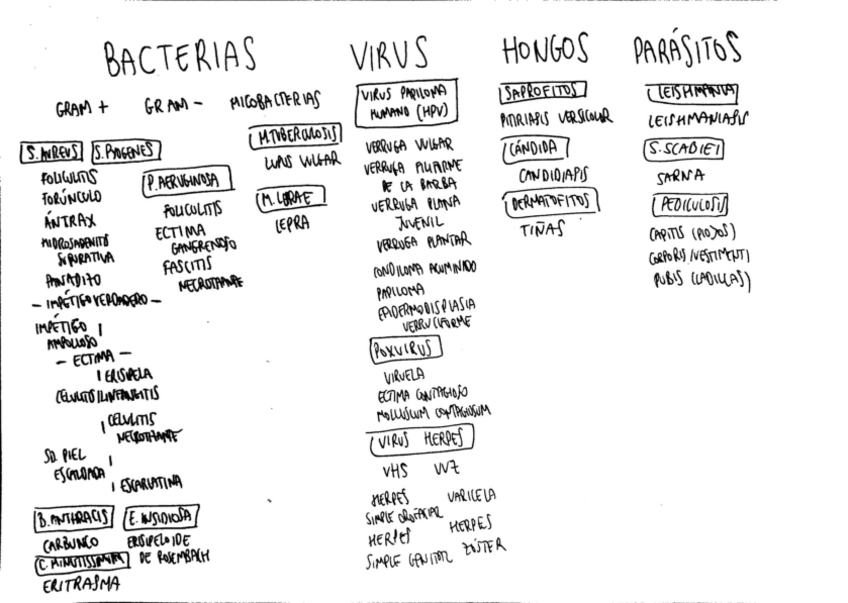 BACTERIAS
GRAM + GRAM - MICOBACTERIAS
S. AUREUS S. PIOGENES
FOLICULITIS
FORÚNCULO
ÁNTRAX
HIDROSADENITIS
SUPURATIVA
PANADIZO
- IMPÉTIGO VERDADERO -
IMPÉTIGO
AMPOLLOSO
- ECTIMA -
ERISIPELA
CELULITIS/LINFANGITIS
CELULITIS
NECROTIZANTE
SD. PIEL
ESCALDADA
ESCARLATINA
B. ANTHRACIS E. INSIDIOSA
CARBUNCO ERISIPELOIDE
DE ROSEMBACH
C. MINUTISSIMUM
ERITRASMA
P. AERUGINOSA
FOLICULITIS
ECTIMA
GANGRENOSO
FASCITIS
NECROTIZANTE
M. TUBERCULOSIS
LUPUS VULGAR
M. LEPRAE
LEPRA
VIRUS
VIRUS PAPILOMA
HUMANO (HPV)
VERRUGA VULGAR
VERRUGA FILIFORME
DE LA BARBA
VERRUGA PLANA
JUVENIL
VERRUGA PLANTAR
CONDILOMA ACUMINADO
PAPILOMA
EPIDERMODISPLASIA
VERRUCIFORME
POXVIRUS
VIRUELA
ECTIMA CONTAGIOSO
MOLLUSCUM CONTAGIOSUM
VIRUS HERPES
VHS VVZ
HERPES
SIMPLE OROFACIAL
HERPES
SIMPLE GENITAL
VARICELA
HERPES
ZÓSTER
HONGOS
SAPROFITOS
PITIRIASIS VERSICOLOR
CÁNDIDA
CANDIDIASIS
DERMATOFITOS
TIÑAS
PARÁSITOS
LEISHMANIA
LEISHMANIASIS
S. SCABIEI
SARNA
PEDICULOSIS
CAPITIS (PIOJOS)
CORPORIS/VESTIMENTI
PUBIS (LADILLAS)